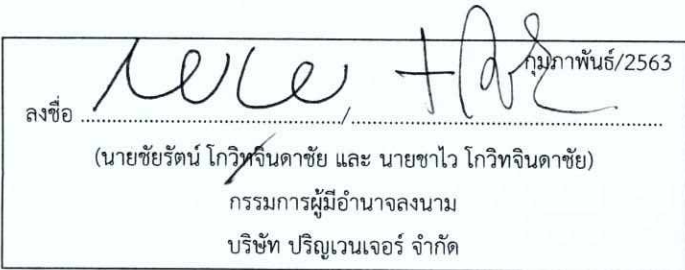 กุมภาพันธ์/2563
ลงชื่อ ............................................./.......................................................
(นายชัยรัตน์ โกวิทจินดาชัย และ นายชาไว โกวิทจินดาชัย)
กรรมการผู้มีอำนาจลงนาม
บริษัท ปริญเวนเจอร์ จำกัด